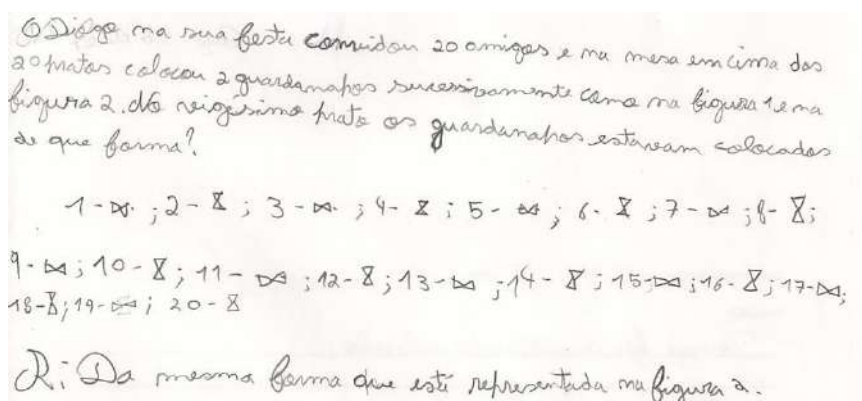 O Diogo na sua festa convidou 20 amigos e na mesa em cima dos
20 pratos colocou 2 guardanapos sucessivamente como na figura 1 e na
figura 2. No vigésimo prato os guardanapos estavam colocados
de que forma?
1-⋈ ; 2-⧖ ; 3-⋈ ; 4-⧖ ; 5-⋈ ; 6-⧖ ; 7-⋈ ; 8-⧖;
9-⋈; 10-⧖; 11-⋈ ; 12-⧖; 13-⋈ ; 14-⧖ ; 15-⋈; 16-⧖; 17-⋈;
18-⧖; 19-⋈ ; 20-⧖
R: Da mesma forma que está representada na figura 2.